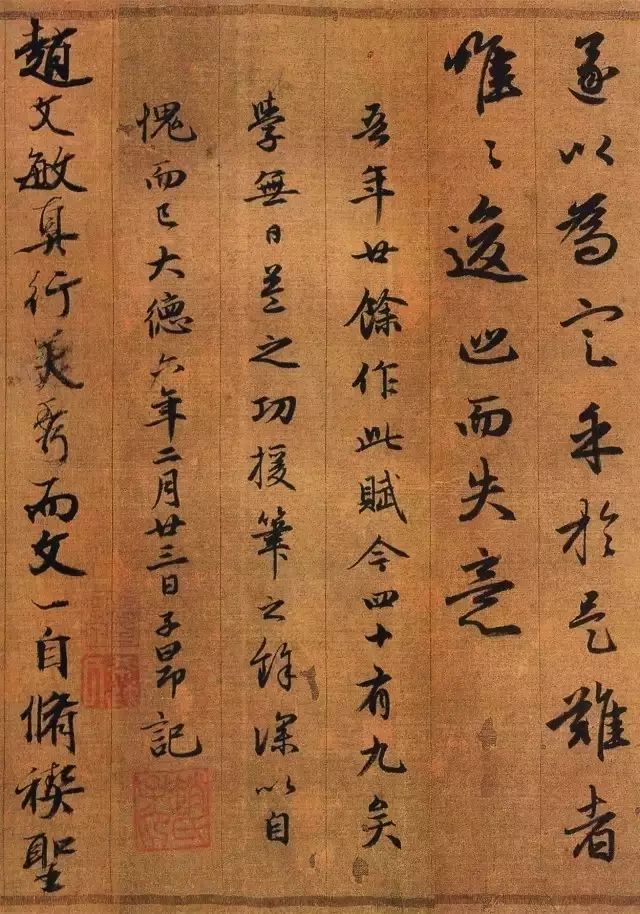 遂以為定乎於是難者
唯々逡巡而失意
吾年廿餘作此賦今四十有九矣
學無日益之功援筆之餘深以自
愧而已大德六年二月廿三日子昂記
趙文敏真行美秀而文一自脩禊聖